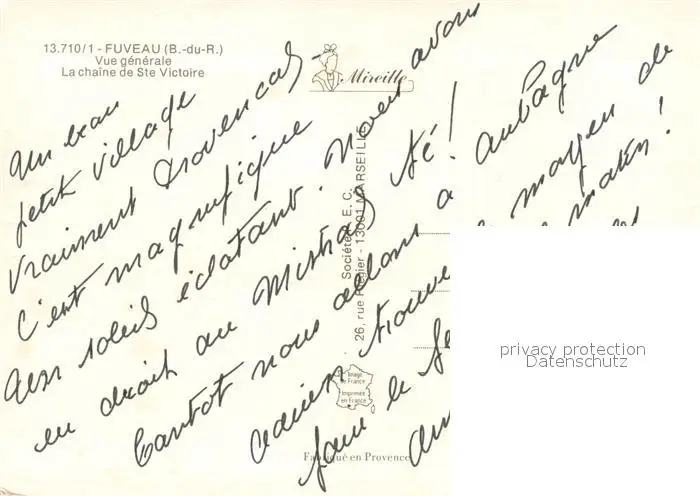 13.710/1 - FUVEAU (B.-du-R.)
Vue générale
La chaîne de Ste Victoire
Mireille
Un beau
petit village
vraiment Provençal -
C'est magnifique
Un soleil éclatant. Nous avons
eu droit au Mistral
Tantot nous allons a Aubagne
trouve moyen de
faire le
matin!
Société E. C.
26, rue - 13001 MARSEILLE
Image de France
Imprimée en France
Fabriqué en Provence
privacy protection
Datenschutz